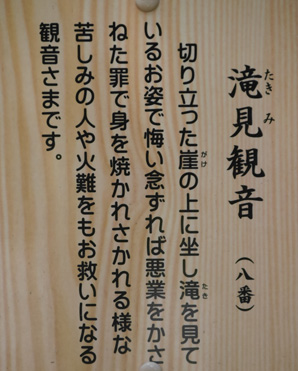 滝見観音（八番）
切り立った崖の上に坐し滝を見て
いるお姿で悔い念ずれば悪業をかさ
ねた罪で身を焼かれさかれる様な
苦しみの人や火難をもお救いになる
観音さまです。